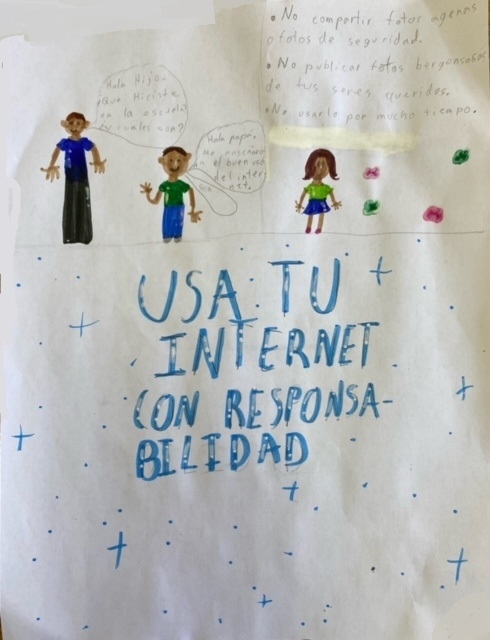 • No compartir fotos agenas
o fotos de seguridad.
• No publicar fotos bergonsosas
de tus seres queridos.
• No usarlo por mucho tiempo.
Hola Hijo.
¿Que Hiciste
en la escuela
cuales son?
Hola papá,
me enseñaron
el buen uso
del inter
net.
USA TU
INTERNET
CON RESPONSA-
BILIDAD